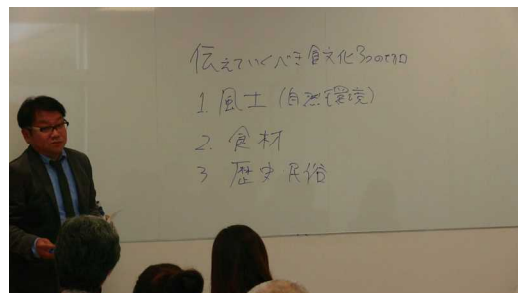 伝えていくべき食文化3つの切口
1. 風土 (自然環境)
2. 食材
3 歴史 民俗